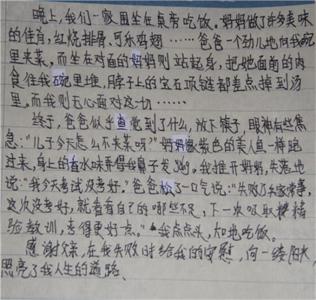 晚上,我们一家围坐在桌旁吃饭。妈妈做了许多美味
的佳肴,红烧排骨、可乐鸡翅……爸爸一个劲儿地向我碗
里夹菜,而坐在对面的妈妈则站起身,把她面前的肉
食往我碗里堆,脖子上的宝石项链都差点掉到汤
里,而我则无心面对这一切……
终于,爸爸似乎查觉到了什么,放下筷子,眼神有些焦
急:“儿子今天怎么不夹菜呀?”妈妈像紫色的美人鱼一样跑
过来,身上的香水味弄得我鼻子发。我推开妈妈,失落地
说:“我今天考试没考好。”爸爸松了口气说:“失败乃兵家常事,
这次没考好,就看看自己的哪些不足,下一次吸取经
验教训,考得更好点。”我点点头,大口地吃饭。
感谢父亲,在我失败时给我的安慰,向一缕阳光,
照亮了我人生的道路。